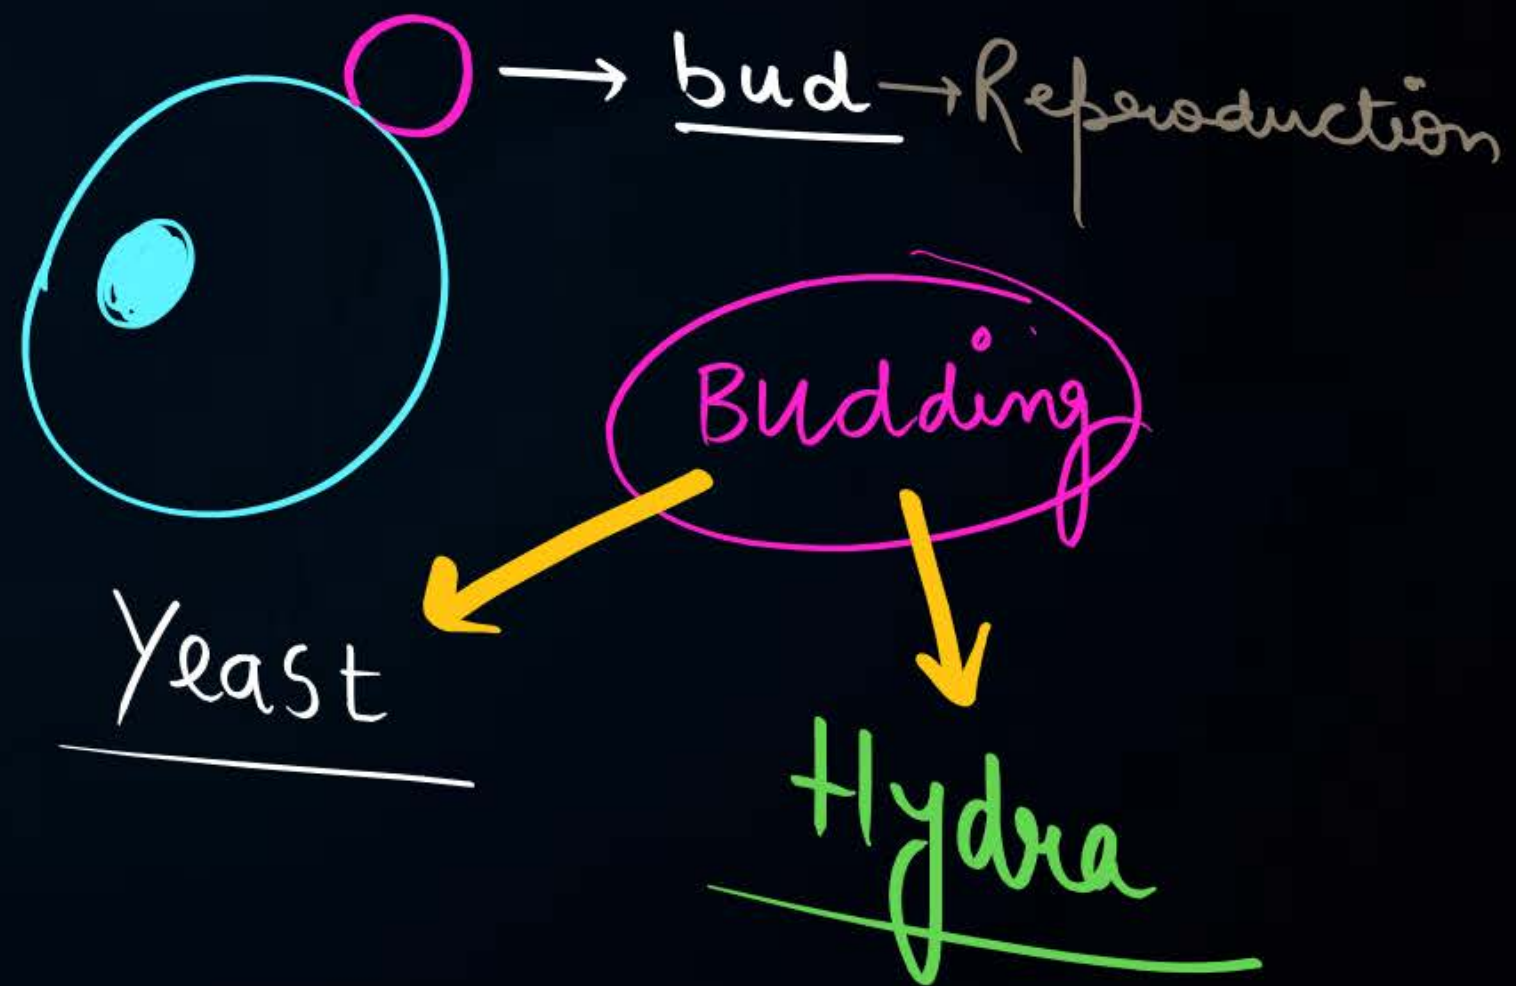 → bud → Reproduction
Budding
Yeast
Hydra